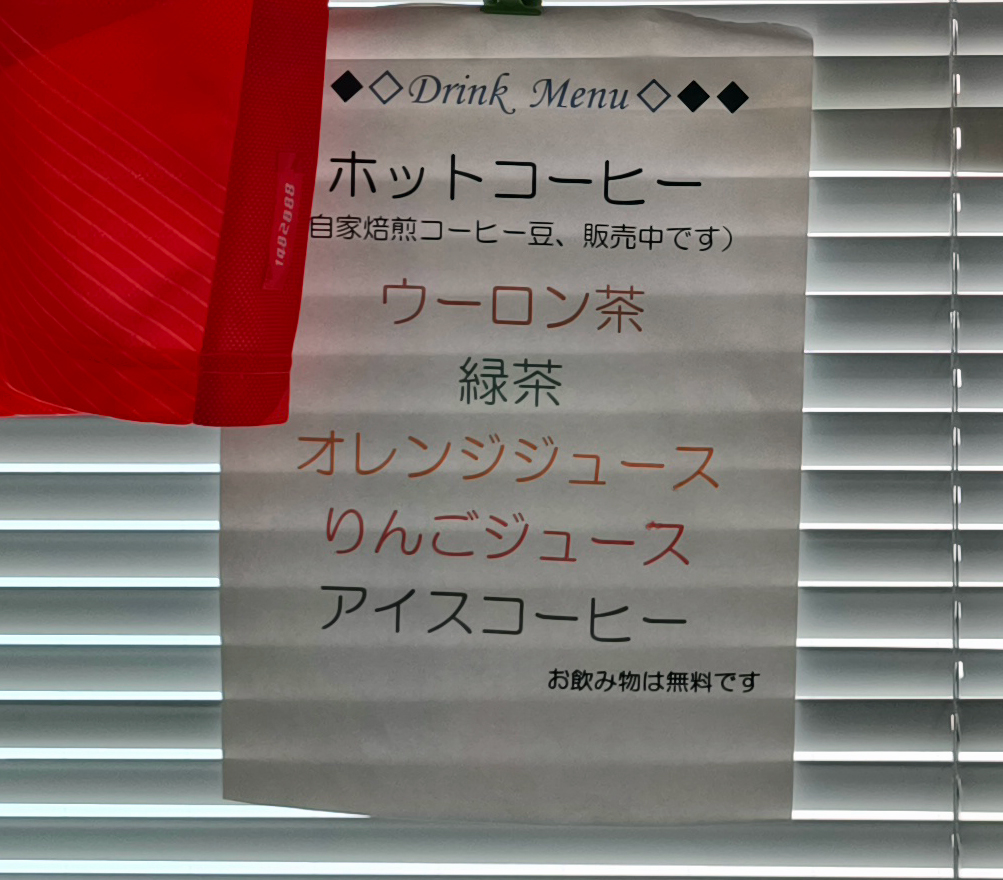 ◆◇Drink Menu◇◆◆
ホットコーヒー
自家焙煎コーヒー豆、販売中です）
ウーロン茶
緑茶
オレンジジュース
りんごジュース
アイスコーヒー
お飲み物は無料です